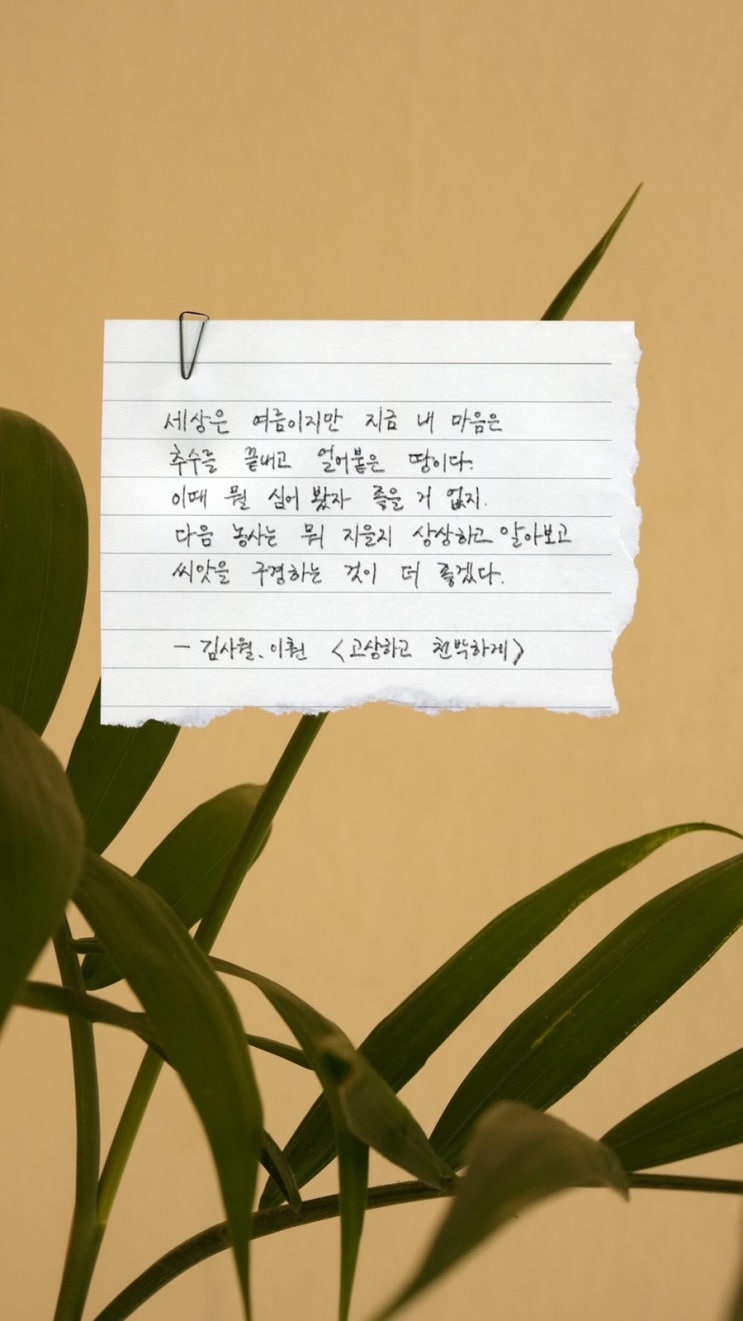 세상은 여름이지만 지금 내 마음은
추수를 끝내고 얼어붙은 땅이다.
이때 뭘 심어 봤자 좋을 거 없지.
다음 농사는 뭐 지을지 상상하고 알아보고
씨앗을 구경하는 것이 더 좋겠다.
- 김사월、이훤 <고상하고 천박하게>